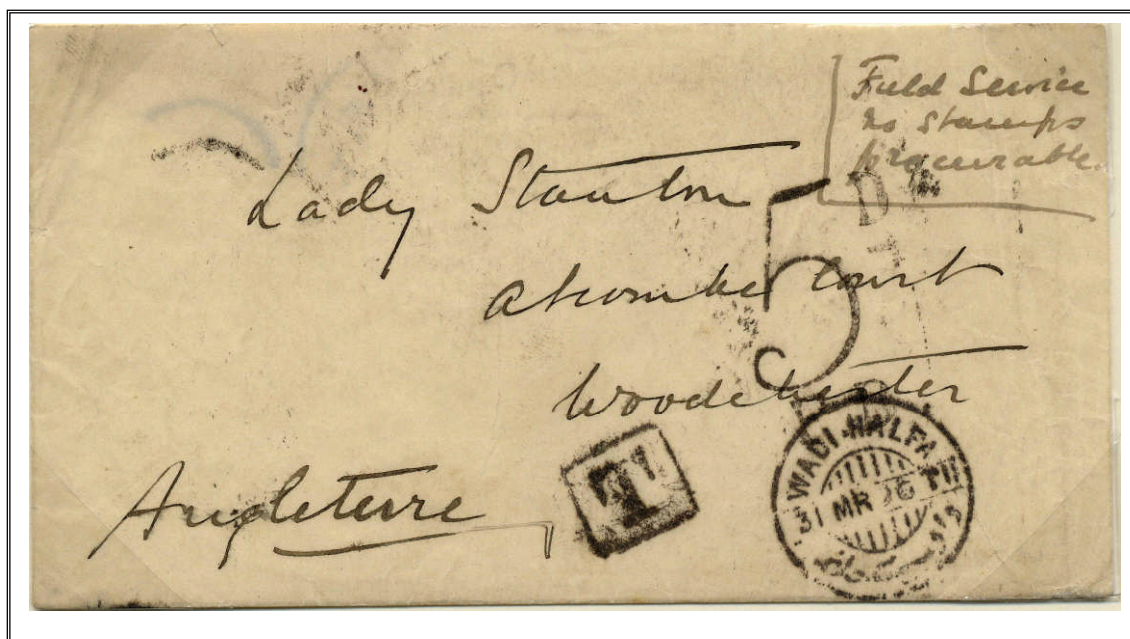 Field Service
no Stamps
procurable
Lady Staunton
5
Court
Woodchester
Angleterre
T
WADI-HALFA
31 MR 96 T II